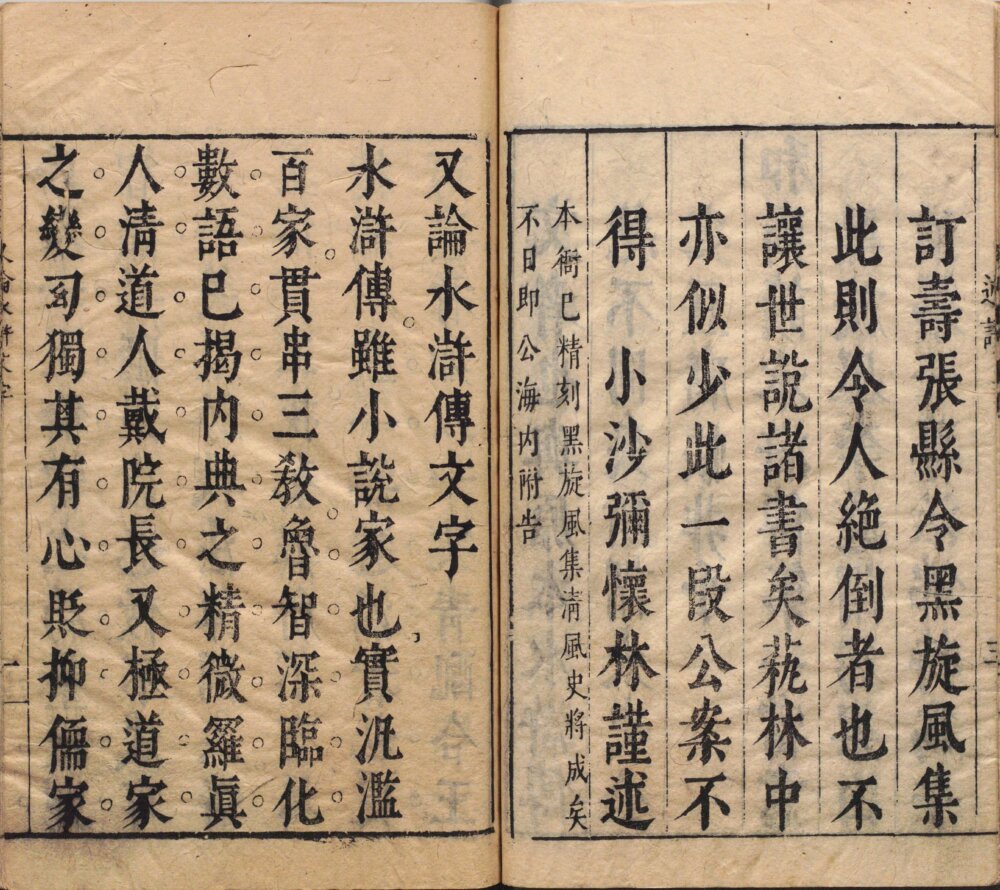 訂壽張縣令黑旋風集
此則令人絕倒者也不
讓世說諸書矣秇林中
亦似少此一段公案不
得　小沙彌懷林謹述
本衙已精刻黑旋風集清風史將成矣
不日即公海內附告
又論水滸傳文字
水滸傳雖小說家也實汎濫
百家貫串三教魯智深臨化
數語已揭內典之精微羅真
人清道人戴院長又極道家
之變幻獨其有心貶抑儒家